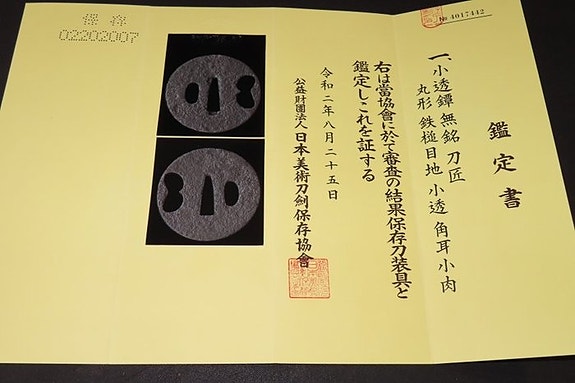 № 4017442
鑑定書
一、小透鐔 無銘 刀匠
丸形 鉄槌目地 小透 角耳小肉
右は當協會に於て審査の結果保存刀装具と
鑑定しこれを証する
令和二年八月二十五日
公益財團法人 日本美術刀劍保存協會
保存
02202007